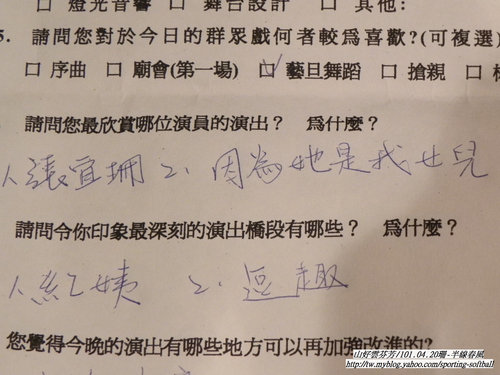 □ 燈光音響 □ 舞台設計 □ 其他：
5. 請問您對於今日的群眾戲何者較為喜歡?(可複選)
□ 序曲 □ 廟會(第一場) ☑ 藝旦舞蹈 □ 搶親 □
請問您最欣賞哪位演員的演出？ 為什麼？
1、讓宜珊 2、因為她是我女兒
請問令你印象最深刻的演出橋段有哪些？ 為什麼？
1、紅姨 2、逗趣
您覺得今晚的演出有哪些地方可以再加強改進的?
山好雲芬芳/101.04.20珊-半線春風
http://tw.myblog.yahoo.com/sporting-softball